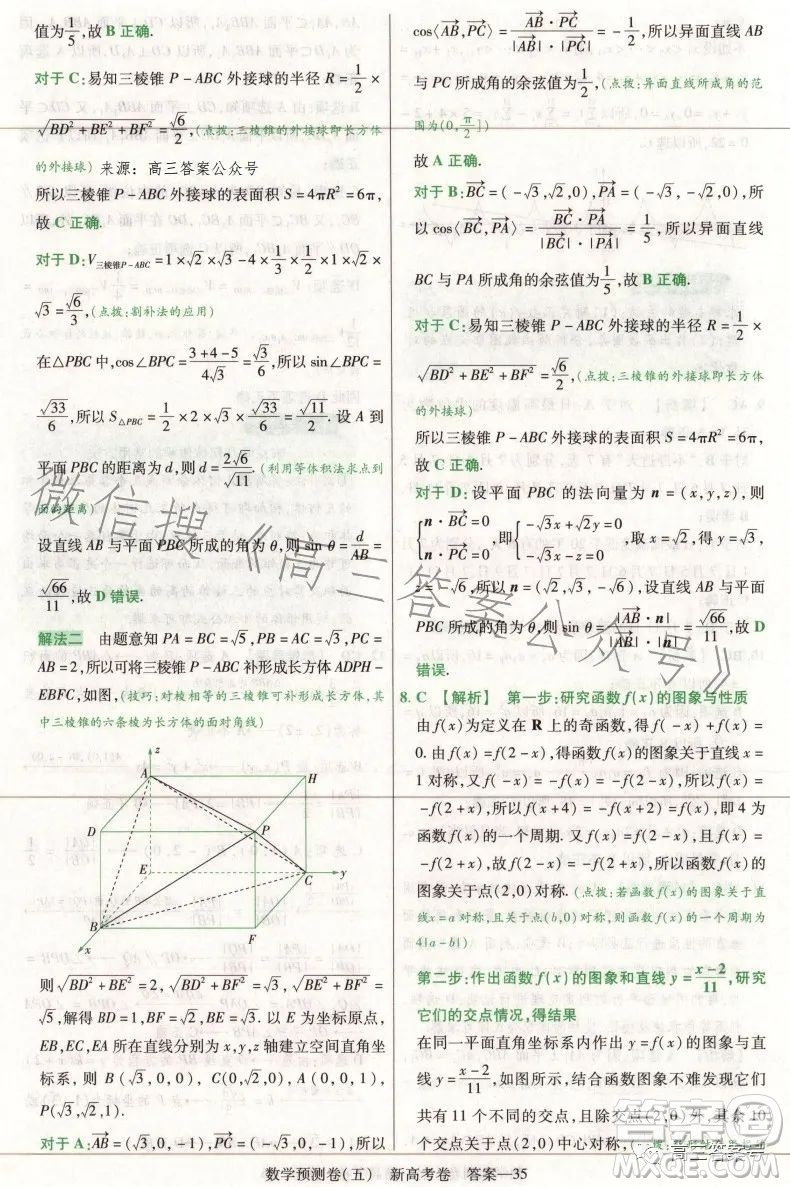 值为1/5,故 B 正确.
对于 C:易知三棱锥 P-ABC 外接球的半径 R=1/2×
√(BD²+BE²+BF²)=√6/2,(点拨:三棱锥的外接球即长方体
的外接球) 来源:高三答案公众号
所以三棱锥 P-ABC 外接球的表面积 S=4πR²=6π,
故 C 正确.
对于 D:V三棱锥P-ABC=1×√2×√3-4×1/3×1/2×1×√2×
√3=√6/3,(点拨:割补法的应用)
在△PBC 中,cos∠BPC=(3+4-5)/(4√3)=√3/6,所以 sin∠BPC=
√33/6,所以 S△PBC=1/2×2×√3×√33/6=√11/2. 设 A 到
平面 PBC 的距离为 d,则 d=2√6/11.(利用等体积法求点到
面的距离)
设直线 AB 与平面 PBC 所成的角为 θ,则 sin θ=d/AB=
√66/11,故 D 错误.
解法二 由题意知 PA=BC=√5,PB=AC=√3,PC=
AB=2,所以可将三棱锥 P-ABC 补形成长方体 ADPH-
EBFC,如图,(技巧:对棱相等的三棱锥可补形成长方体,其
中三棱锥的六条棱为长方体的面对角线)
z
A
H
D
P
E
C
y
B
F
x
则√(BD²+BE²)=2,√(BD²+BF²)=√3,√(BE²+BF²)=
√5,解得 BD=1,BF=√2,BE=√3. 以 E 为坐标原点,
EB,EC,EA 所在直线分别为 x,y,z 轴建立空间直角坐
标系,则 B(√3,0,0),C(0,√2,0),A(0,0,1),
P(√3,√2,1).
对于 A:AB=(√3,0,-1),PC=(-√3,0,-1),所以
cos⟨AB,PC⟩=AB·PC/(|AB|·|PC|)=-1/2,所以异面直线 AB
与 PC 所成角的余弦值为1/2,(点拨:异面直线所成角的范
围为(0,π/2])
故 A 正确.
对于 B:BC=(-√3,√2,0),PA=(-√3,-√2,0),所
以 cos⟨BC,PA⟩=BC·PA/(|BC|·|PA|)=1/5,所以异面直线
BC 与 PA 所成角的余弦值为1/5,故 B 正确.
对于 C:易知三棱锥 P-ABC 外接球的半径 R=1/2×
√(BD²+BE²+BF²)=√6/2,(点拨:三棱锥的外接球即长方体
的外接球)
所以三棱锥 P-ABC 外接球的表面积 S=4πR²=6π,
故 C 正确.
对于 D:设平面 PBC 的法向量为 n=(x,y,z),则
{n·BC=0 n·PC=0,即{-√3x+√2y=0 -√3x-z=0,取 x=√2,得 y=√3,
z=-√6,所以 n=(√2,√3,-√6),设直线 AB 与平面
PBC 所成的角为 θ,则 sin θ=|AB·n|/(|AB|·|n|)=√66/11,故 D
错误.
8. C 【解析】 第一步:研究函数 f(x)的图象与性质
由 f(x)为定义在 R 上的奇函数,得 f(-x)+f(x)=
0. 由 f(x)=f(2-x),得函数 f(x)的图象关于直线 x=
1 对称,又 f(-x)=-f(x)=-f(2-x),所以 f(x)=
-f(2+x),所以 f(x+4)=-f(x+2)=f(x),即 4 为
函数 f(x)的一个周期. 又 f(x)=f(2-x),且 f(x)=
-f(2+x),所以 f(2-x)=-f(2+x),所以函数 f(x)的
图象关于点(2,0)对称.(点拨:若函数 f(x)的图象关于直
线 x=a 对称,且关于点(b,0)对称,则函数 f(x)的一个周期为
4|a-b|)
第二步:作出函数 f(x)的图象和直线 y=(x-2)/11,研究
它们的交点情况,得结果
在同一平面直角坐标系内作出 y=f(x)的图象与直
线 y=(x-2)/11,如图所示,结合函数图象不难发现它们
共有 11 个不同的交点,且除交点(2,0)外,其余 10
个交点关于点(2,0)中心对称,
数学预测卷(五) 新高考卷 答案—35
微信搜《高三答案公众号》
高三答案号